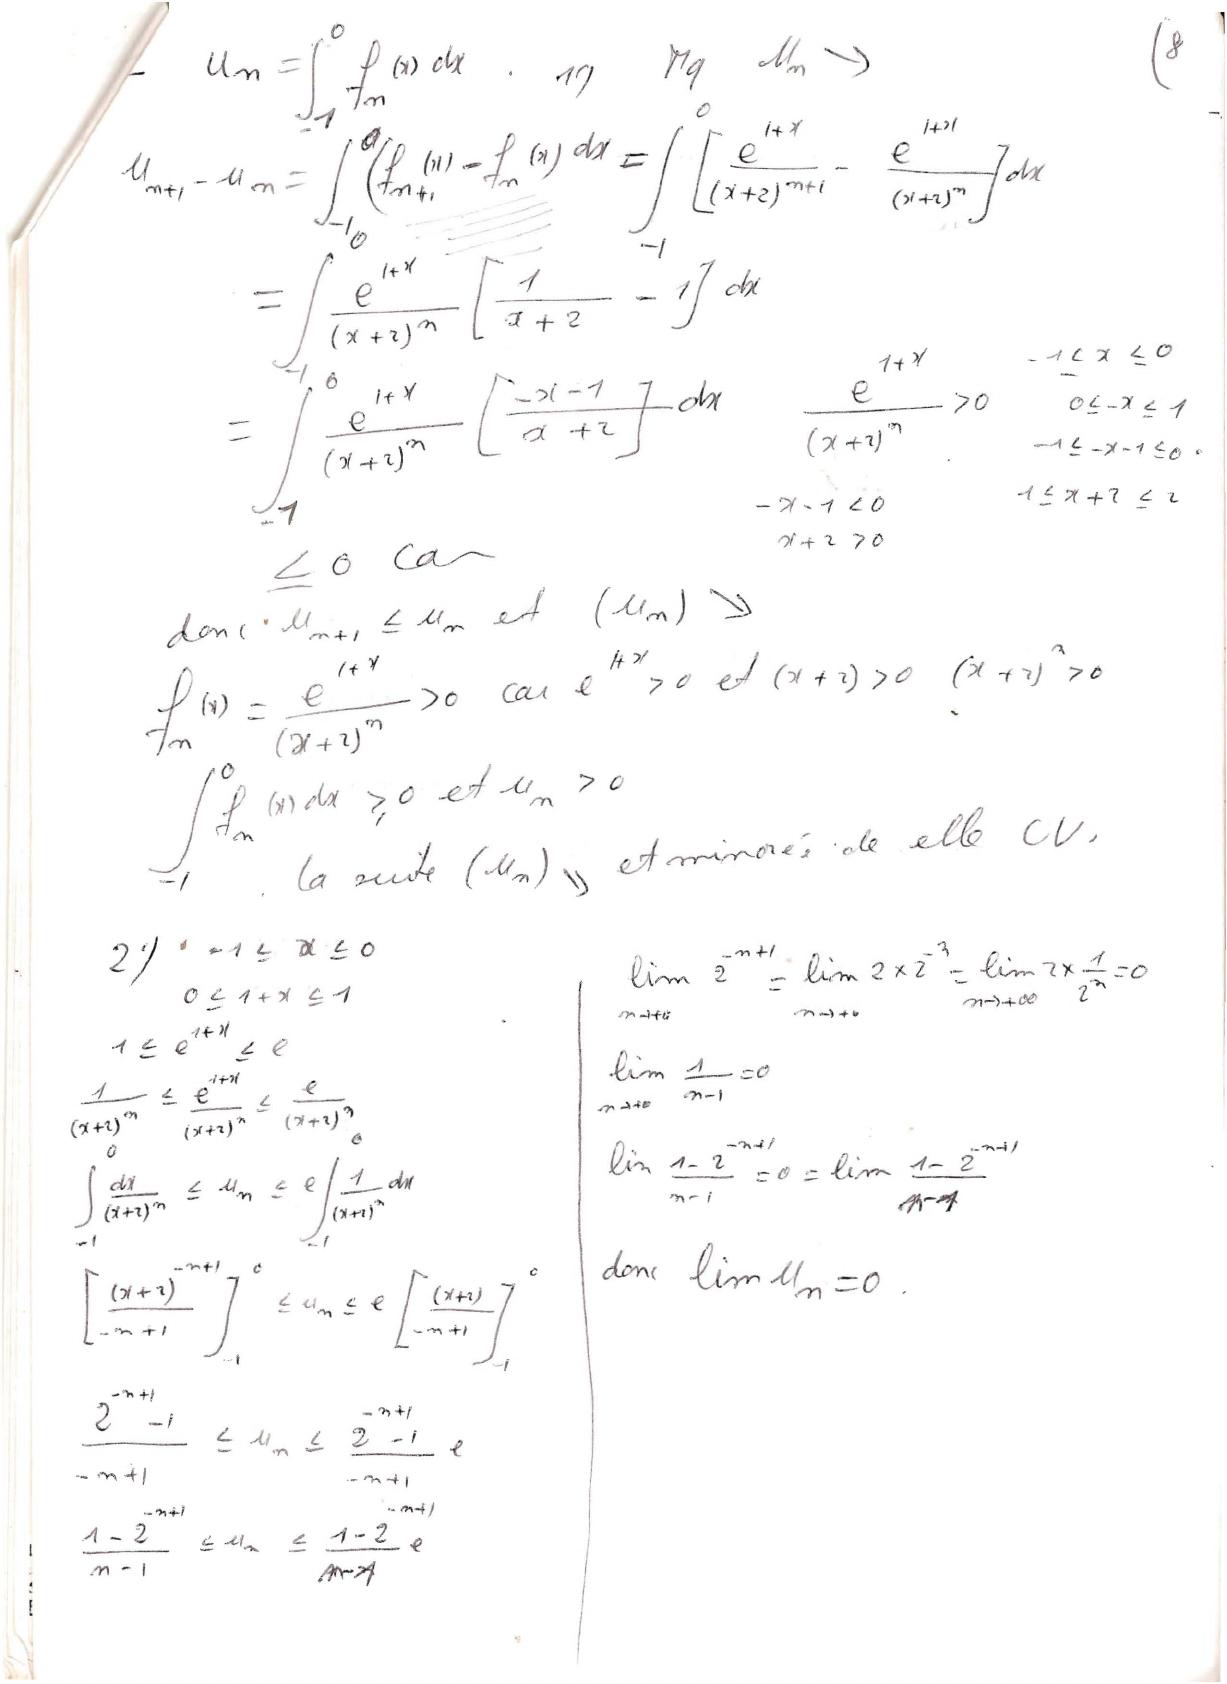 (8
- Uₙ = ∫₋₁⁰ fₙ(x) dx . 1) Mq Uₙ ↘
Uₙ₊₁ - Uₙ = ∫₋₁⁰ (fₙ₊₁(x) - fₙ(x) dx = ∫₋₁⁰ [ e^(1+x)/(x+2)^(n+1) - e^(1+x)/(x+2)^n ] dx
= ∫₋₁⁰ e^(1+x)/(x+2)^n [ 1/(x+2) - 1 ] dx
= ∫₋₁⁰ e^(1+x)/(x+2)^n [ (-x-1)/(x+2) ] dx
e^(1+x)/(x+2)^n > 0
-x-1 < 0
x+2 > 0
-1 ≤ x ≤ 0
0 ≤ -x ≤ 1
-1 ≤ -x-1 ≤ 0
1 ≤ x+2 ≤ 2
≤ 0 car
donc Uₙ₊₁ ≤ Uₙ et (Uₙ) ↘
fₙ(x) = e^(1+x)/(x+2)^n > 0 car e^(1+x) > 0 et (x+2) > 0 (x+2)^n > 0
∫₋₁⁰ fₙ(x) dx ≥ 0 et Uₙ > 0
. la suite (Uₙ) ↘ et minorée de elle CV.
2°) -1 ≤ x ≤ 0
0 ≤ 1+x ≤ 1
1 ≤ e^(1+x) ≤ e
1/(x+2)^n ≤ e^(1+x)/(x+2)^n ≤ e/(x+2)^n
∫₋₁⁰ dx/(x+2)^n ≤ Uₙ ≤ e ∫₋₁⁰ 1/(x+2)^n dx
[ (x+2)^(-n+1)/(-n+1) ]₋₁⁰ ≤ Uₙ ≤ e [ (x+2)/(-n+1) ]₋₁⁰
(2^(-n+1) - 1)/(-n+1) ≤ Uₙ ≤ (2^(-n+1) - 1)/(-n+1) e
(1-2^(-n+1))/(n-1) ≤ Uₙ ≤ (1-2^(-n+1))/(n-1) e
lim_(n→+∞) 2^(-n+1) = lim_(n→+∞) 2×2^(-n) = lim_(n→+∞) 2× 1/2^n = 0
lim_(n→+∞) 1/(n-1) = 0
lim (1-2^(-n+1))/(n-1) = 0 = lim (1-2^(-n+1))/(n-1)
donc lim Uₙ = 0 .